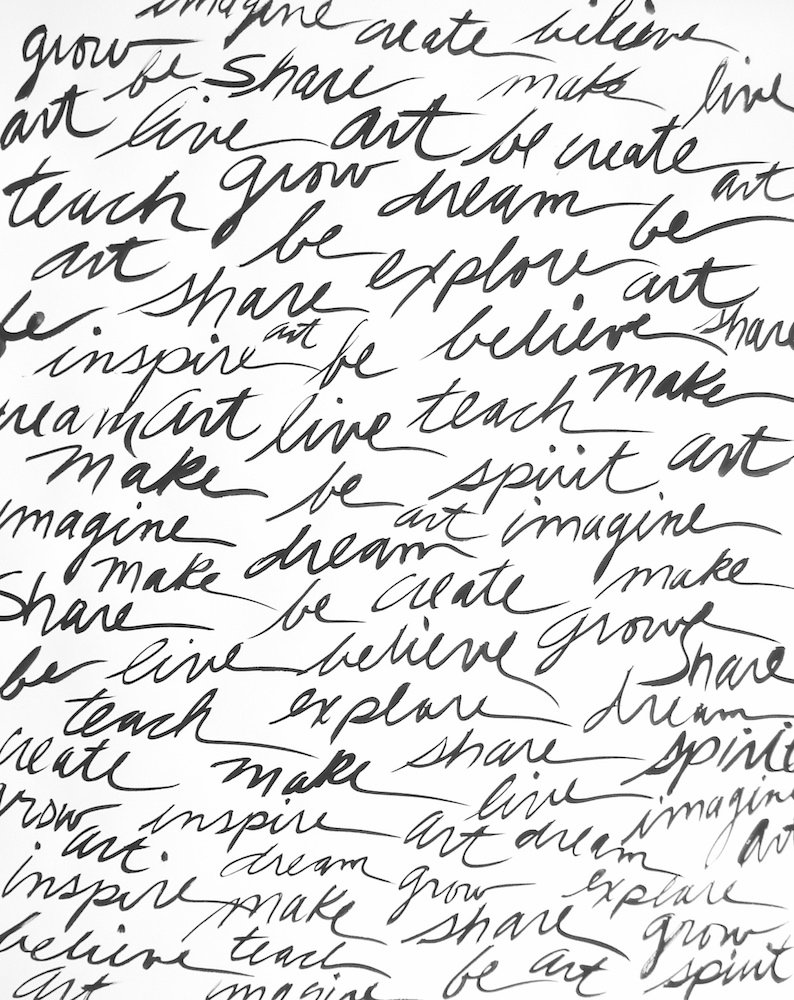 imagine create believe
grow be Share make live
art live art be create
teach grow dream art
art be explore be
be share art
inspire art be believe share
dream art live teach make
make be spirit art
imagine art imagine
make dream make
Share be create grow
be live believe Share
teach explore dream
create make share spirit
grow inspire live imagine
art. art dream art
inspire dream grow explore
make share grow
believe teach be art spirit
art imagine